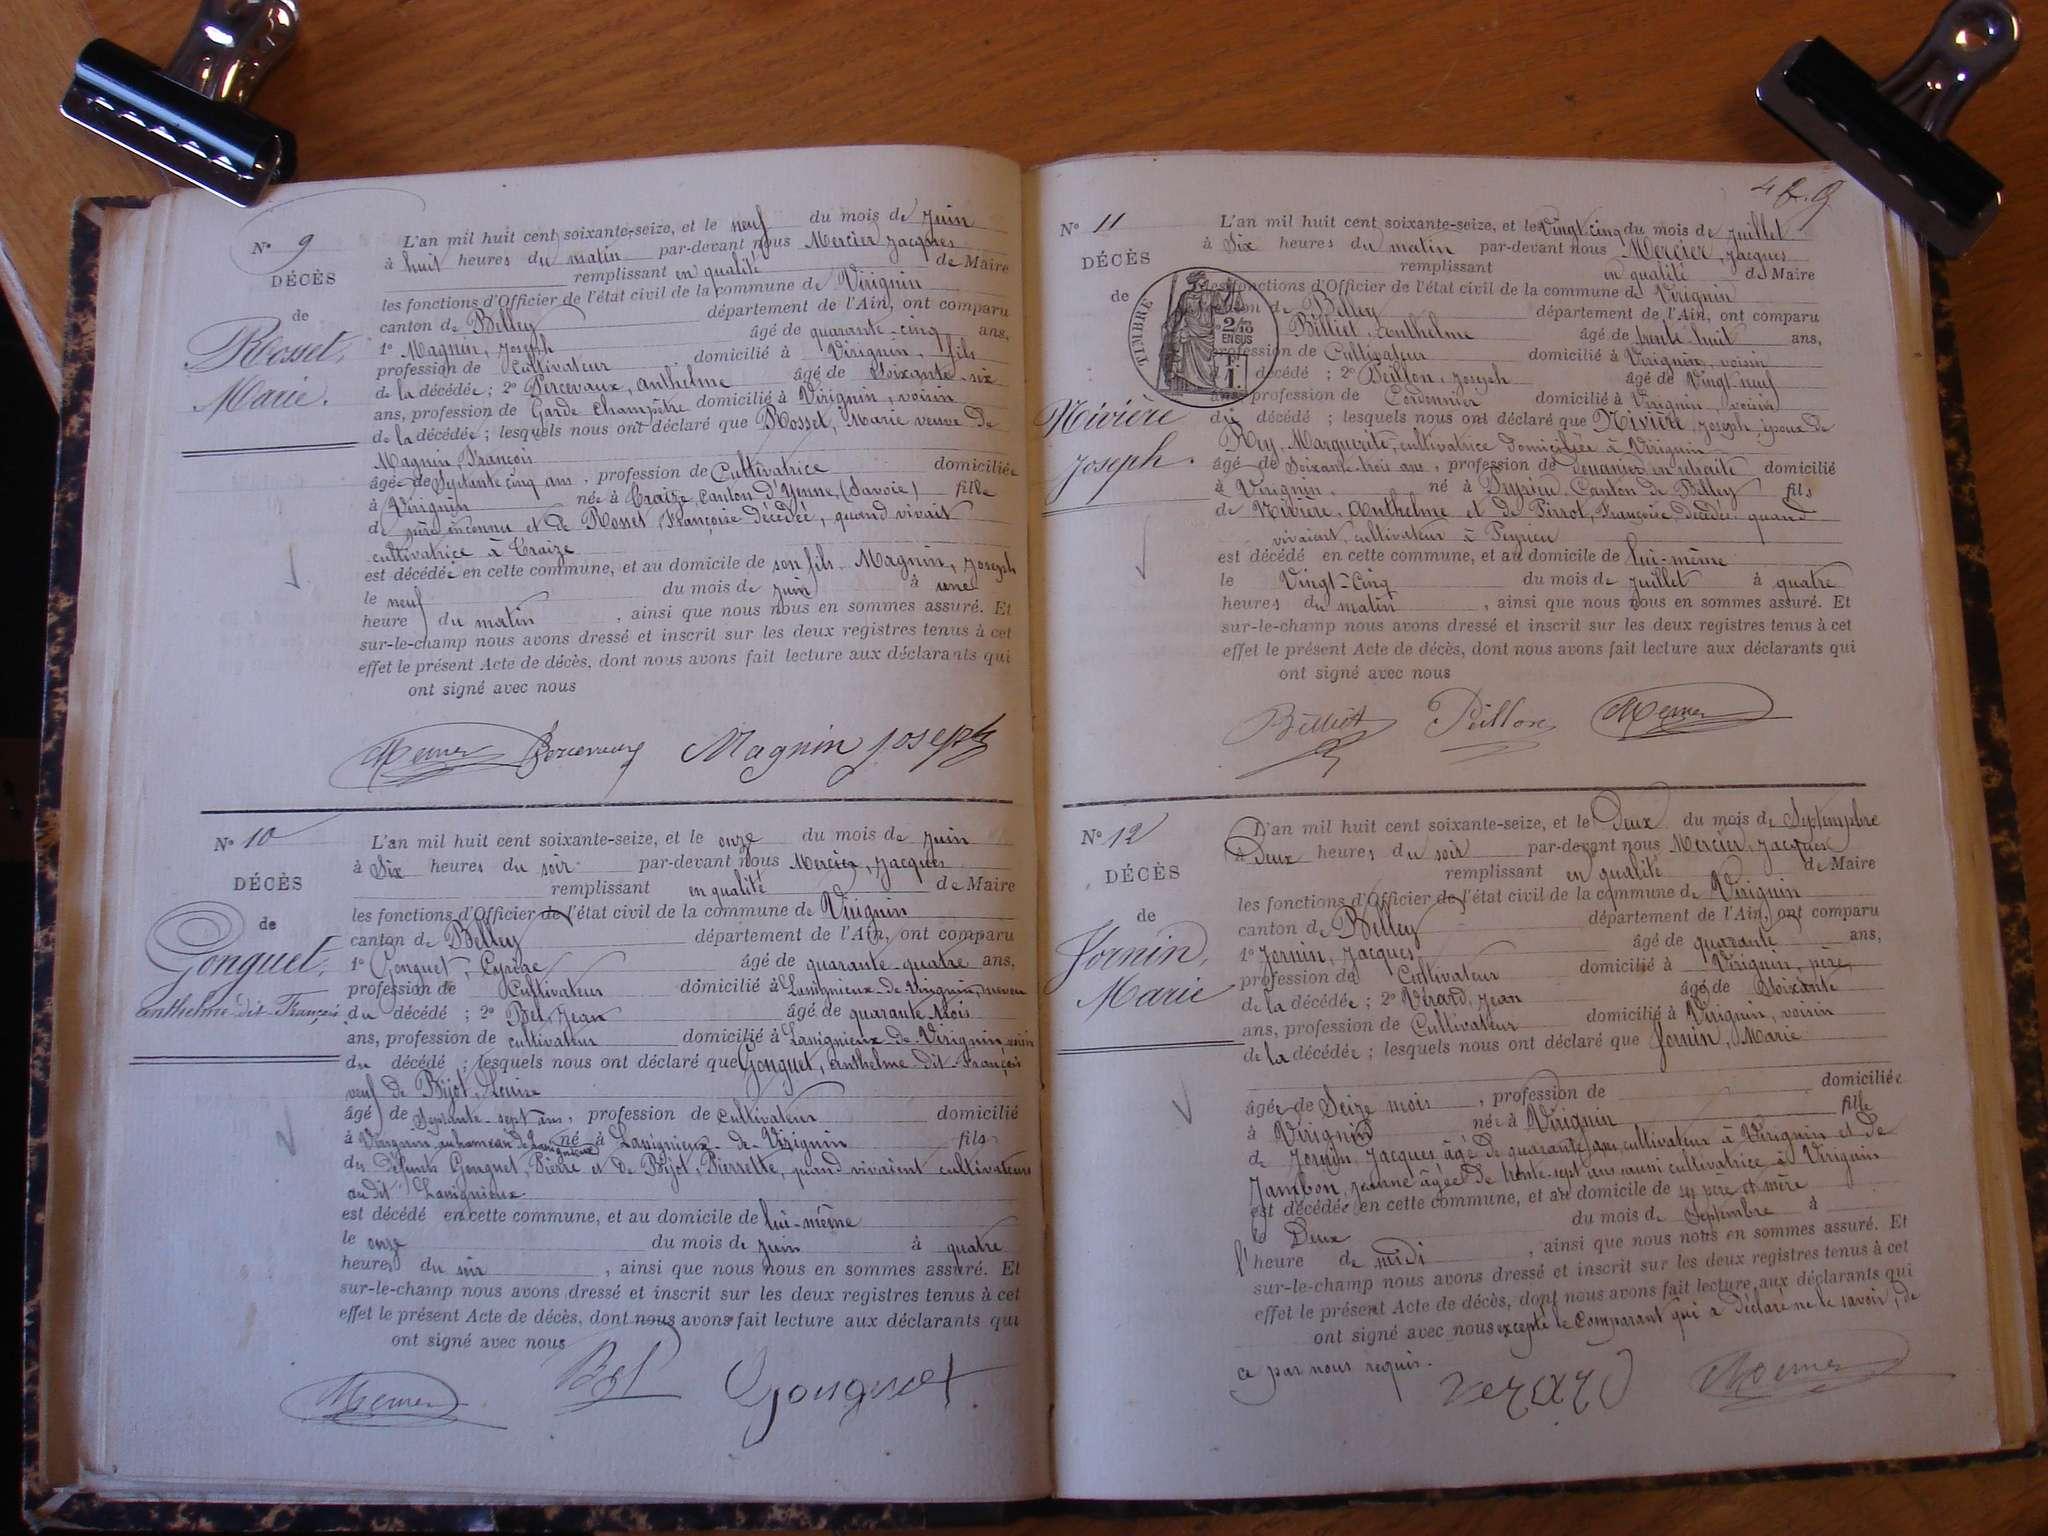 N° 9
DÉCÈS
de
Rosset,
Marie.
L'an mil huit cent soixante-seize, et le neuf du mois de Juin
à huit heures du matin par-devant nous Mercier Jacques
remplissant en qualité de Maire
les fonctions d'Officier de l'état civil de la commune de Virignin
canton de Belley département de l'Ain, ont comparu
1° Magnin, Joseph âgé de quarante-cinq ans,
profession de Cultivateur domicilié à Virignin, fils
de la décédée; 2° Percevaux, Anthelme âgé de Soixante-six
ans, profession de Garde Champêtre domicilié à Virignin, voisin
de la décédée; lesquels nous ont déclaré que Rosset, Marie veuve de
Magnin, François
âgée de Septante cinq ans, profession de Cultivatrice domiciliée
à Virignin née à Traize, canton d'Yenne, (Savoie) fille
de père inconnu et de Rosset, Françoise décédée, quand vivait
cultivatrice à Traize
est décédée en cette commune, et au domicile de son fils Magnin, Joseph
le neuf du mois de Juin à une
heure du matin, ainsi que nous nous en sommes assuré. Et
sur-le-champ nous avons dressé et inscrit sur les deux registres tenus à cet
effet le présent Acte de décès, dont nous avons fait lecture aux déclarants qui
ont signé avec nous
Magnin Joseph
N° 10
DÉCÈS
de
Gonguet,
Anthelme dit François
L'an mil huit cent soixante-seize, et le onze du mois de Juin
à Six heures du soir par-devant nous Mercier, Jacques
remplissant en qualité de Maire
les fonctions d'Officier de l'état civil de la commune de Virignin
canton de Belley département de l'Ain, ont comparu
1° Gonguet, âgé de quarante-quatre ans,
profession de Cultivateur domicilié à Lassignieux-de-Virignin, neveu
du décédé; 2° Bel, Jean âgé de quarante trois
ans, profession de cultivateur domicilié à Lassignieux de Virignin voisin
du décédé; lesquels nous ont déclaré que Gonguet, Anthelme dit François
veuf de Bijot, Louise
âgé de Septante-sept ans, profession de Cultivateur domicilié
à Virignin, au hameau de Lassignieux né à Lassignieux-de-Virignin fils
des défunts Gonguet, Pierre et de Bijot, Pierrette, quand vivaient cultivateurs
audit Lassignieux
est décédé en cette commune, et au domicile de lui-même
le onze du mois de Juin à quatre
heures du soir, ainsi que nous nous en sommes assuré. Et
sur-le-champ nous avons dressé et inscrit sur les deux registres tenus à cet
effet le présent Acte de décès, dont nous avons fait lecture aux déclarants qui
ont signé avec nous
Bel Gonguet
N° 11
DÉCÈS
de
TIMBRE
2/10
EN SUS
1 F.
Nivière
Joseph.
L'an mil huit cent soixante-seize, et le Vingt cinq du mois de Juillet
à Six heures du matin par-devant nous Mercier, Jacques
remplissant en qualité de Maire
les fonctions d'Officier de l'état civil de la commune de Virignin
canton de Belley département de l'Ain, ont comparu
Billiet, Anthelme âgé de trente huit ans,
profession de Cultivateur domicilié à Virignin, voisin
décédé; 2° Peillon, Joseph âgé de Vingt neuf
ans, profession de Cordonnier domicilié à Virignin, voisin
du décédé; lesquels nous ont déclaré que Nivière, Joseph, époux de
Rey, Marguerite, cultivatrice domiciliée à Virignin
âgé de Soixante-trois ans, profession de Douanier en retraite domicilié
à Virignin, né à Peyrieu, Canton de Belley fils
de Nivière, Anthelme et de Pirrot, Françoise, décédés quand
vivaient, cultivateur à Peyrieu
est décédé en cette commune, et au domicile de lui-même
le Vingt-Cinq du mois de Juillet à quatre
heures du matin, ainsi que nous nous en sommes assuré. Et
sur-le-champ nous avons dressé et inscrit sur les deux registres tenus à cet
effet le présent Acte de décès, dont nous avons fait lecture aux déclarants qui
ont signé avec nous
Billiet Peillon
N° 12
DÉCÈS
de
Jornin,
Marie
L'an mil huit cent soixante-seize, et le Deux du mois de Septempbre
à Deux heures du soir par-devant nous Mercier, Jacques
remplissant en qualité de Maire
les fonctions d'Officier de l'état civil de la commune de Virignin
canton de Belley département de l'Ain, ont comparu
1° Jornin, Jacques âgé de quarante ans,
profession de Cultivateur domicilié à Virignin, père
de la décédée; 2° Vérard, Jean âgé de Soixante
ans, profession de Cultivateur domicilié à Virignin, voisin
de la décédée; lesquels nous ont déclaré que Jornin, Marie
âgée de Seize mois, profession de domiciliée
à Virignin née à Virignin fille
de Jornin, Jacques âgé de quarante ans, cultivateur à Virignin et de
Jambon, Jeanne âgée de trente-sept ans aussi cultivatrice à Virignin
est décédée en cette commune, et au domicile de ses père et mère
le Deux du mois de Septembre à
l'heure de midi, ainsi que nous nous en sommes assuré. Et
sur-le-champ nous avons dressé et inscrit sur les deux registres tenus à cet
effet le présent Acte de décès, dont nous avons fait lecture aux déclarants qui
ont signé avec nous excepté le Comparant qui a déclaré ne le savoir, de
ce par nous requis.